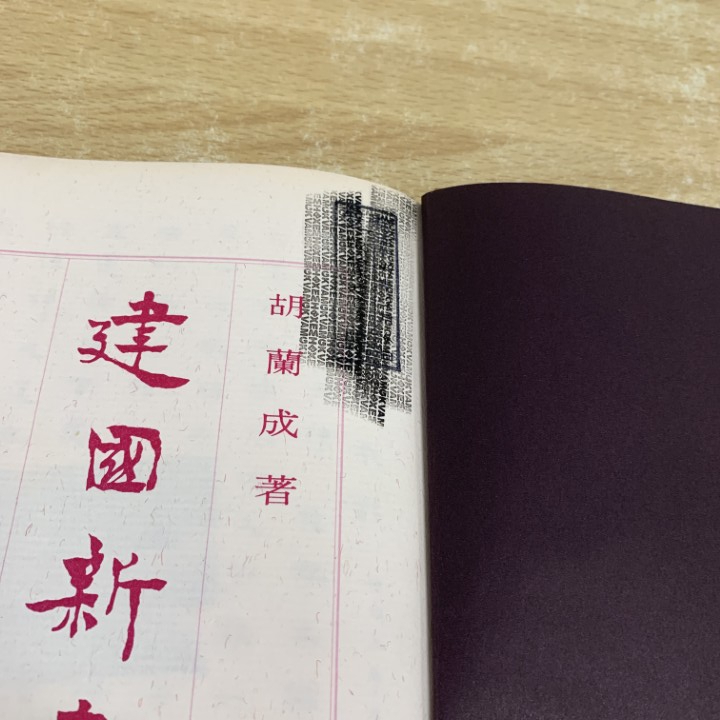 胡蘭成著
建國新